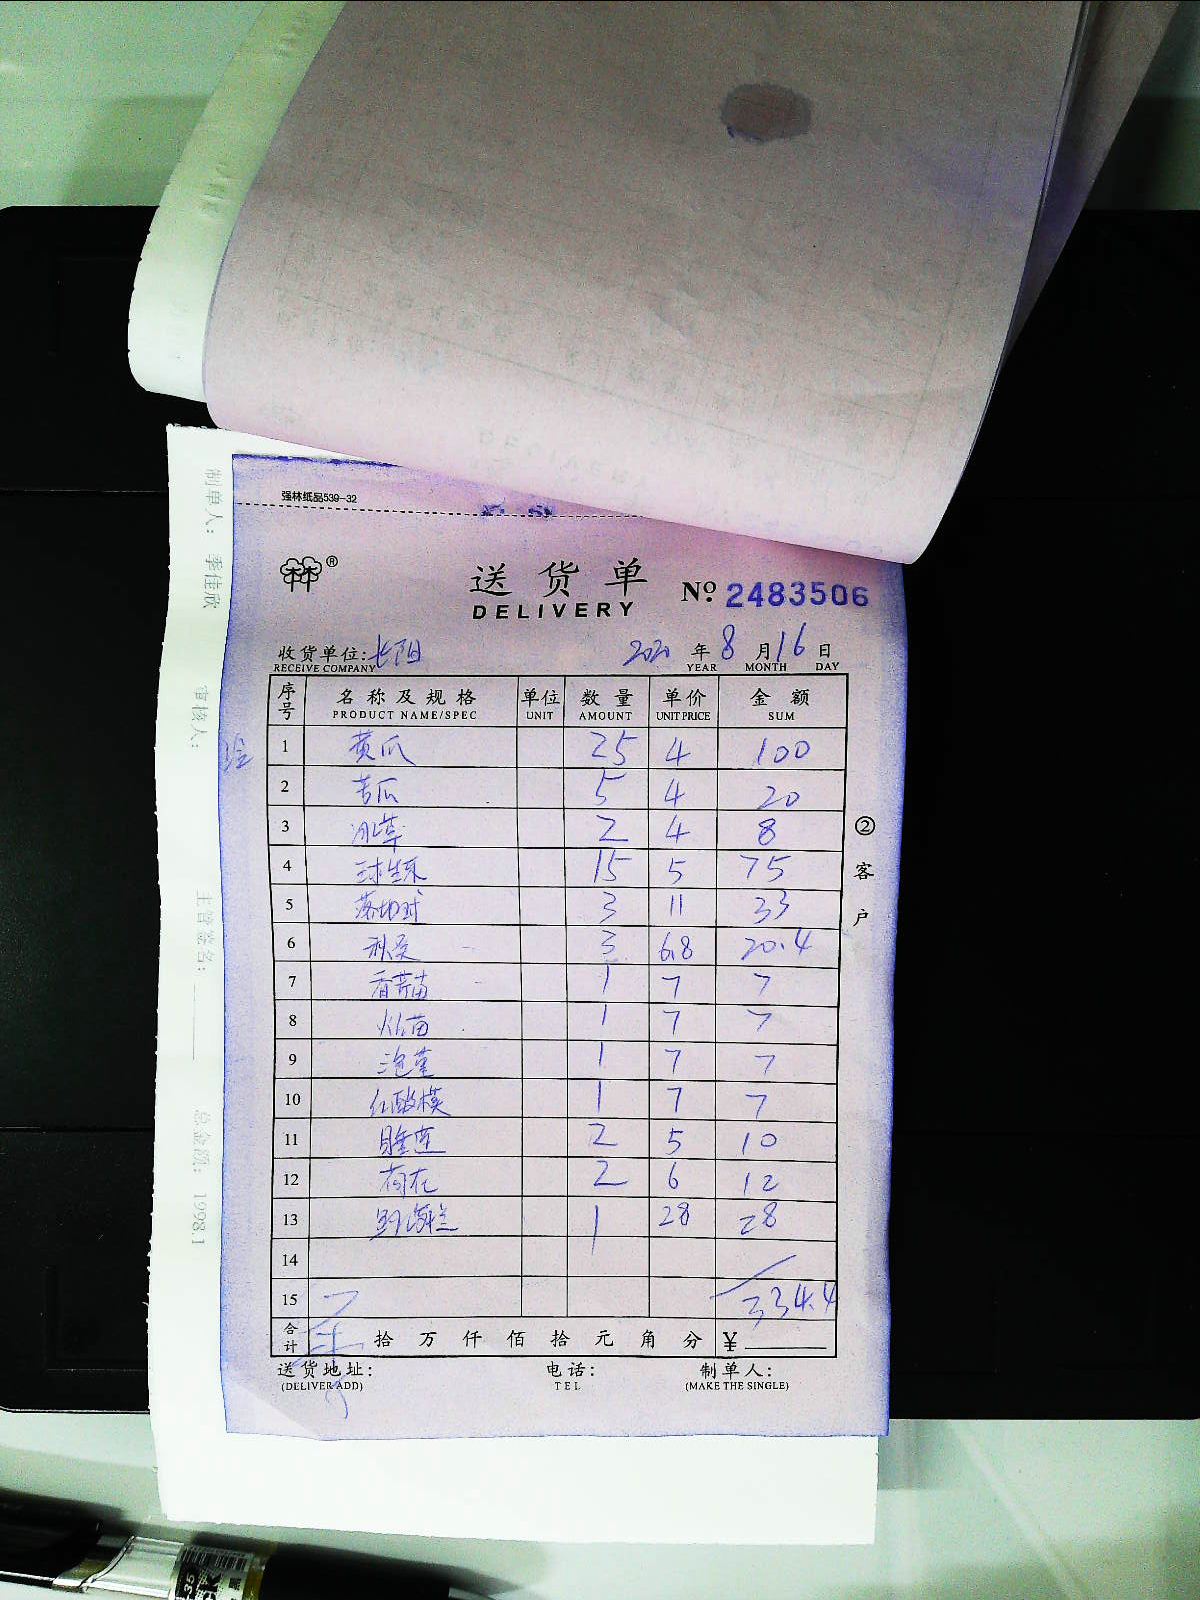 强林纸品539-32
送货单
DELIVERY
№ 2483506
收货单位: 长阳 2020 年 8 月 16 日
RECEIVE COMPANY YEAR MONTH DAY
序号 名称及规格 单位 数量 单价 金额
PRODUCT NAME/SPEC UNIT AMOUNT UNIT PRICE SUM
1 黄瓜 25 4 100
2 苦瓜 5 4 20
3 冰草 2 4 8
4 球生菜 15 5 75
5 3 11 33
6 秋葵 3 6.8 20.4
7 香芹苗 1 7 7
8 苗 1 7 7
9 1 7 7
10 红酸模 1 7 7
11 睡莲 2 5 10
12 荷花 2 6 12
13 1 28 28
14
15 334.4
合计 拾 万 仟 佰 拾 元 角 分 ¥
送货地址: 电话: 制单人:
(DELIVER ADD) TEL (MAKE THE SINGLE)
②客户
制单人: 季佳欣
审核人:
主管签名:
总金额: 1998.1